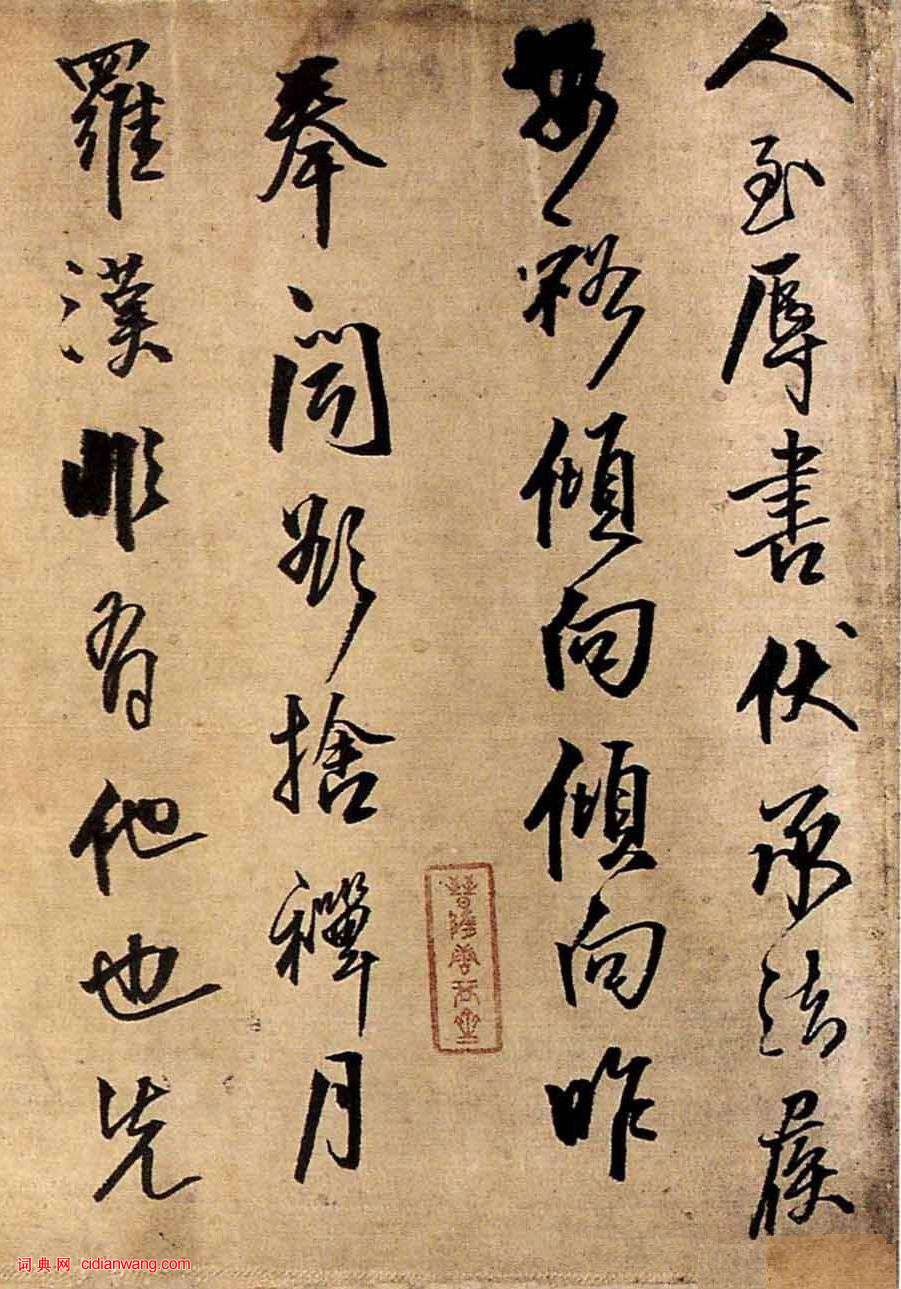 人至辱書伏承法履
安裕傾向傾向昨
奉聞欲捨禪月
羅漢非有他也先
词典网 cidianwang.com